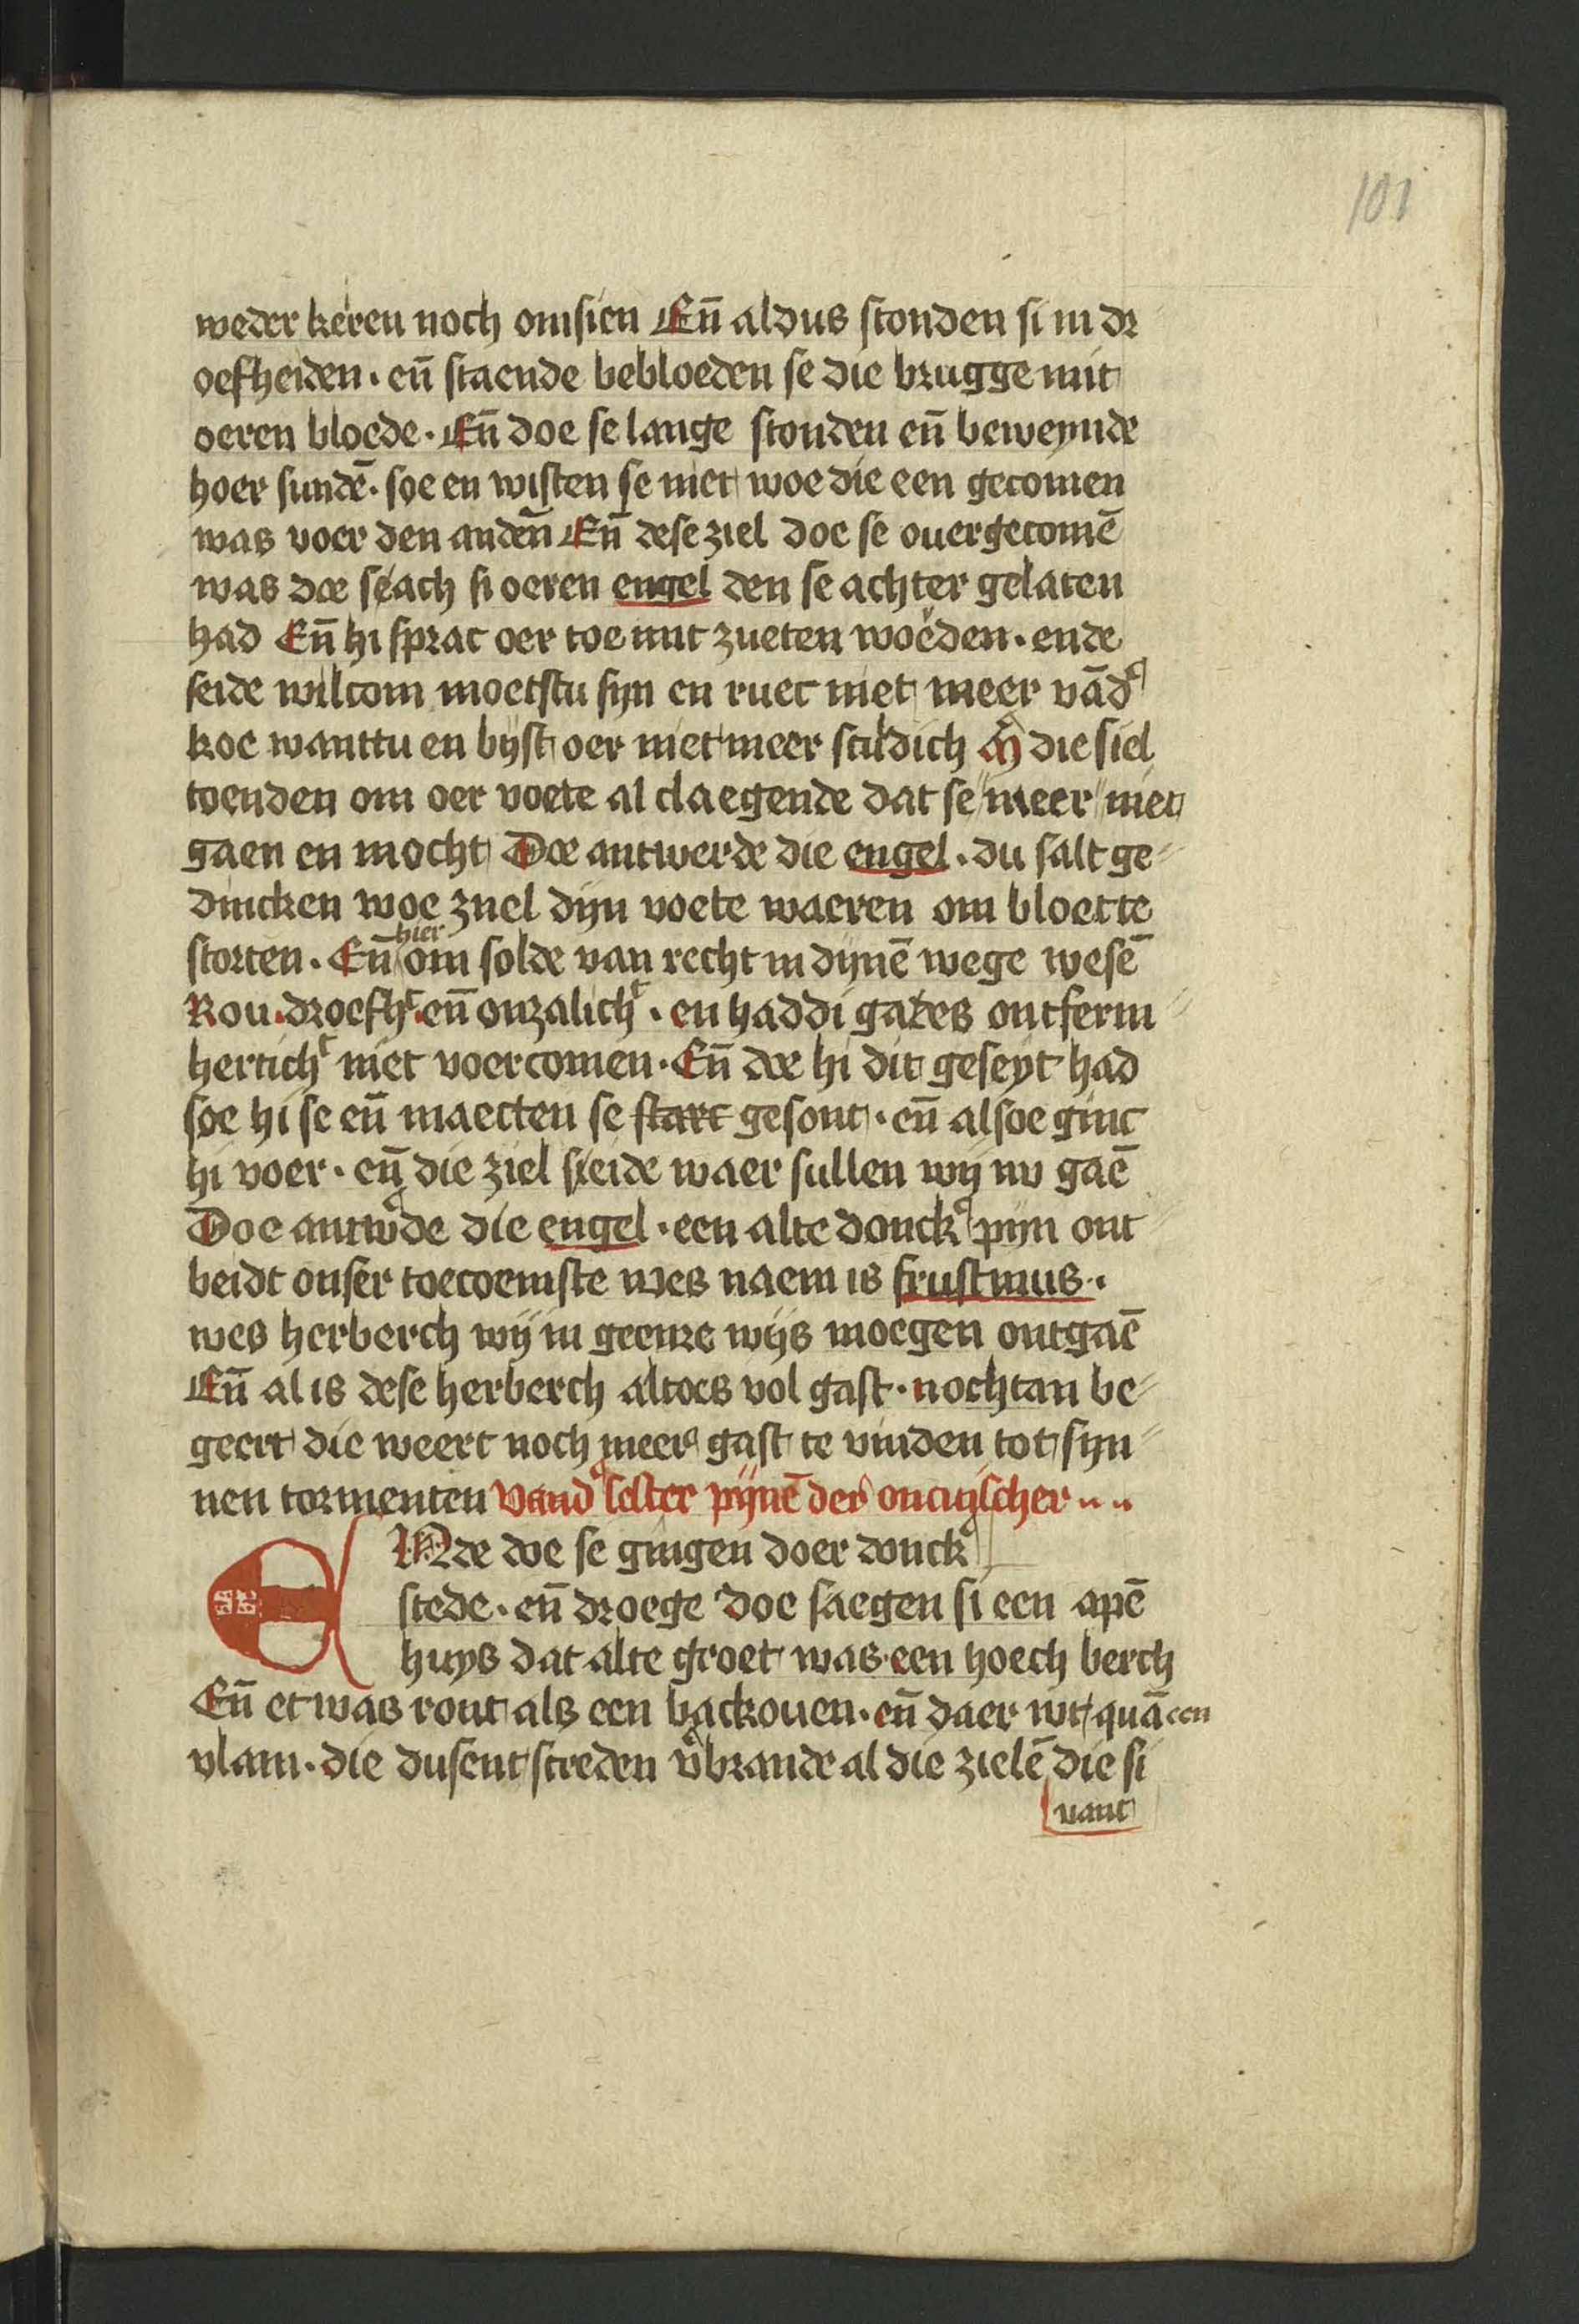 101
weder keren noch omsien Eñ aldus stonden si in dr
oefheiden · eñ staende bebloeden se die brugge mit
oeren bloede · Eñ doe se lange stonden eñ beweynde
hoer sundē · soe en wisten se niet woe die een gecomen
was voer den andeñ Eñ dese ziel doe se ouergecomē
was doe seach si oeren engel den se achter gelaten
had Eñ hi sprac oer toe mit zueten woerden · ende
seide wilcom moetstu sijn en ruec niet meer vād
koe wanttu en bijst oer niet meer sculdich die siel
toenden om oer voete al claegende dat se meer niet
gaen en mocht Doe antwerde die engel · du salt ge
dincken woe znel dijn voete waeren om bloet te
storten · Eñ hier om solde van recht in dijnē wege wesē
Rou · droefht · eñ onzalicht · en haddi gades ontferm
herticht niet voercomen · Eñ doe hi dit geseyt had
soe hi se eñ maecten se starc gesont · eñ alsoe ginc
hi voer · eñ die ziel seide waer sullen wij nv gaē
Doe antwde die engel · een alte donck pijn ont
beidt onser toecoemste wes naem is fristinus ·
wes herberch wij in geenre wijs moegen ontgaē
Eñ al is dese herberch altoes vol gast · nochtan be
geert die weert noch meer gast te vinden tot sijn
nen tormenten vand sester pijnē der oncuijscher
ENde doe se gingen doer donck
stede · eñ droege doe saegen si een apē
huys dat alte groet was · een hoech berch
Eñ et was ront als een backouen · eñ daer wt quā een
vlam · die dusent screden vbrande al die zielē die si
vant